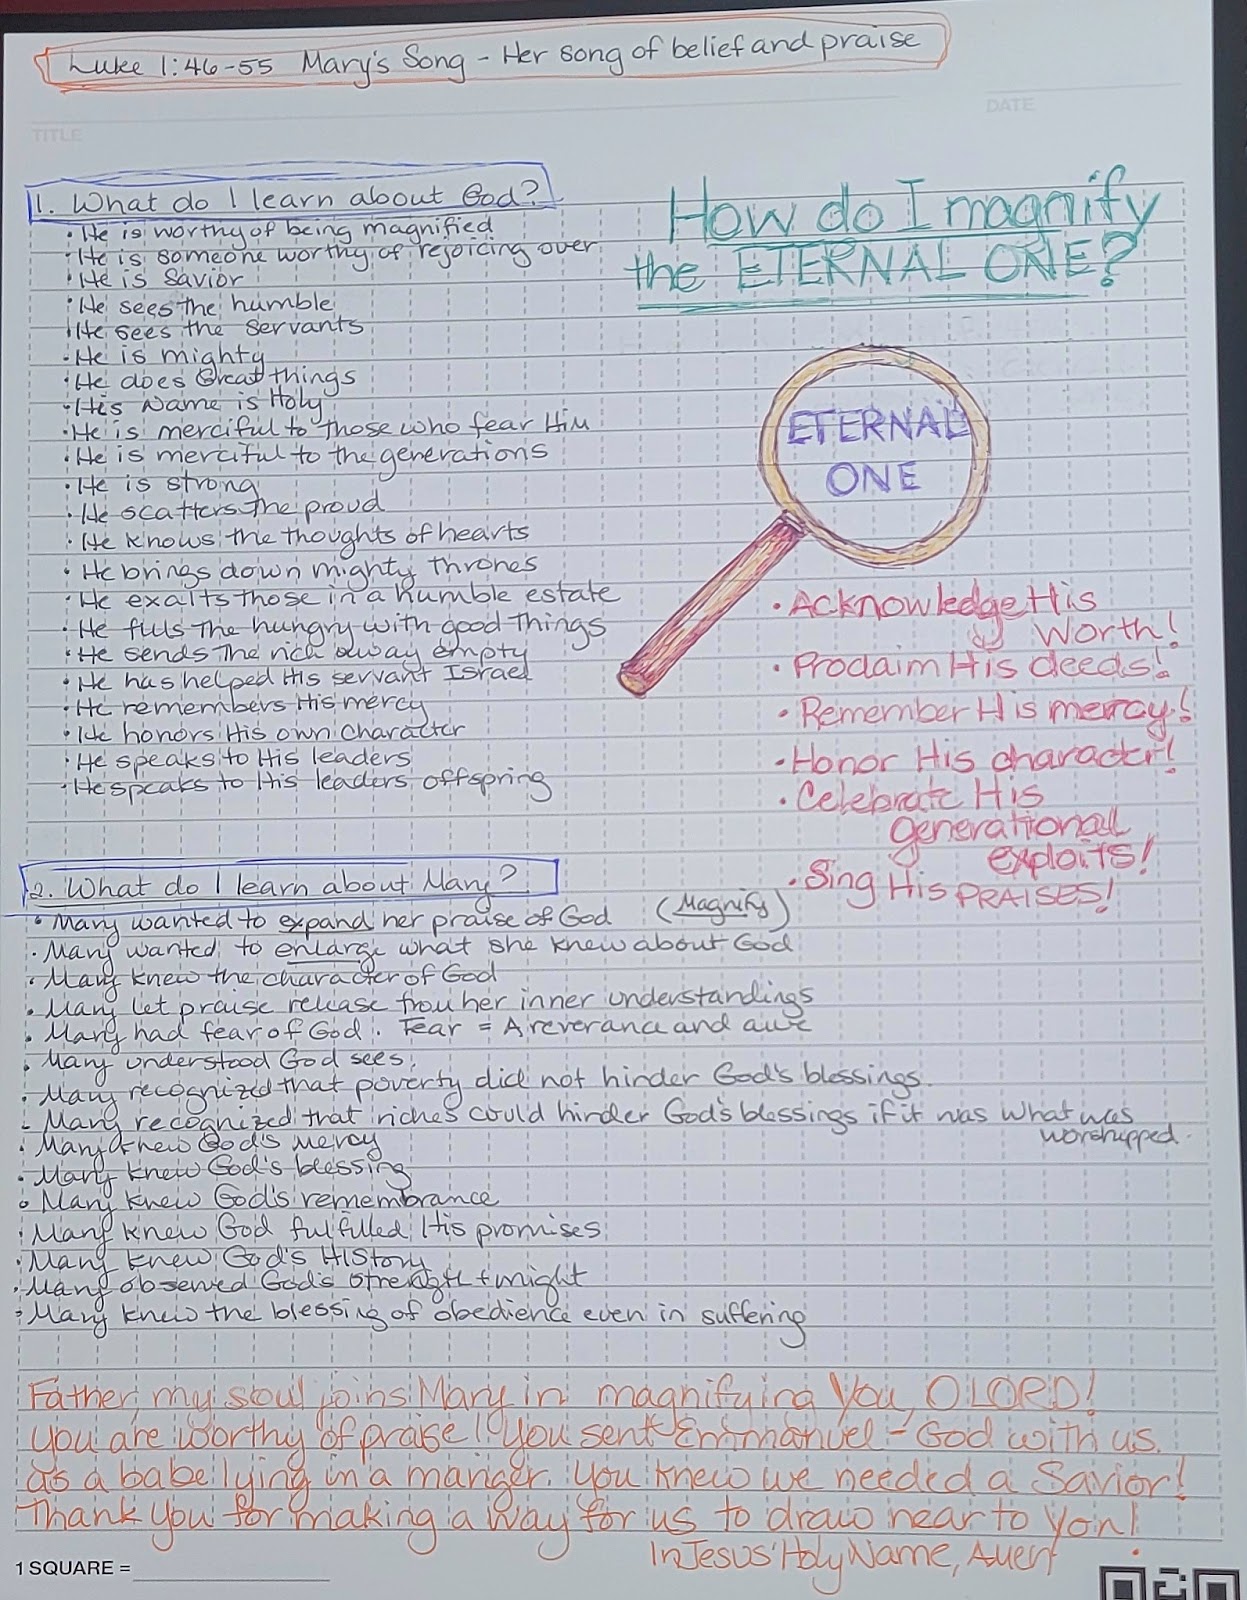 Luke 1:46-55 Mary's Song - Her song of belief and praise
TITLE
DATE
1. What do I learn about God?
• He is worthy of being magnified
• He is someone worthy of rejoicing over
• He is Savior
• He sees the humble
• He sees the servants
• He is mighty
• He does Great things
• His Name is Holy
• He is merciful to those who fear Him
• He is merciful to the generations
• He is strong
• He scatters the proud
• He knows the thoughts of hearts
• He brings down mighty thrones
• He exalts those in a humble estate
• He fills the hungry with good things
• He sends the rich away empty
• He has helped His servant Israel
• He remembers His mercy
• He honors His own character
• He speaks to His leaders
• He speaks to His leaders offspring
How do I magnify
the ETERNAL ONE?
ETERNAL
ONE
• Acknowledge His
Worth!
• Proclaim His deeds!
• Remember His mercy!
• Honor His character!
• Celebrate His
generational
exploits!
• Sing His PRAISES!
2. What do I learn about Mary?
• Mary wanted to expand her praise of God (Magnify)
• Mary wanted to enlarge what she knew about God
• Mary knew the character of God
• Mary let praise release from her inner understandings
• Mary had fear of God. Fear = A reverance and awe
• Mary understood God sees.
• Mary recognized that poverty did not hinder God's blessings.
• Mary recognized that riches could hinder God's blessings if it was what was
worshipped.
• Mary knew God's mercy
• Mary knew God's blessing
• Mary knew God's remembrance
• Mary knew God fulfilled His promises
• Mary knew God's HIStory
• Mary observed God's strength + might
• Mary knew the blessing of obedience even in suffering
Father, my soul joins Mary in magnifying You, O LORD!
You are worthy of praise! You sent Emmanuel - God with us.
as a babe lying in a manger. You knew we needed a Savior!
Thank You for making a way for us to draw near to You!
In Jesus' Holy Name, Amen
1 SQUARE =